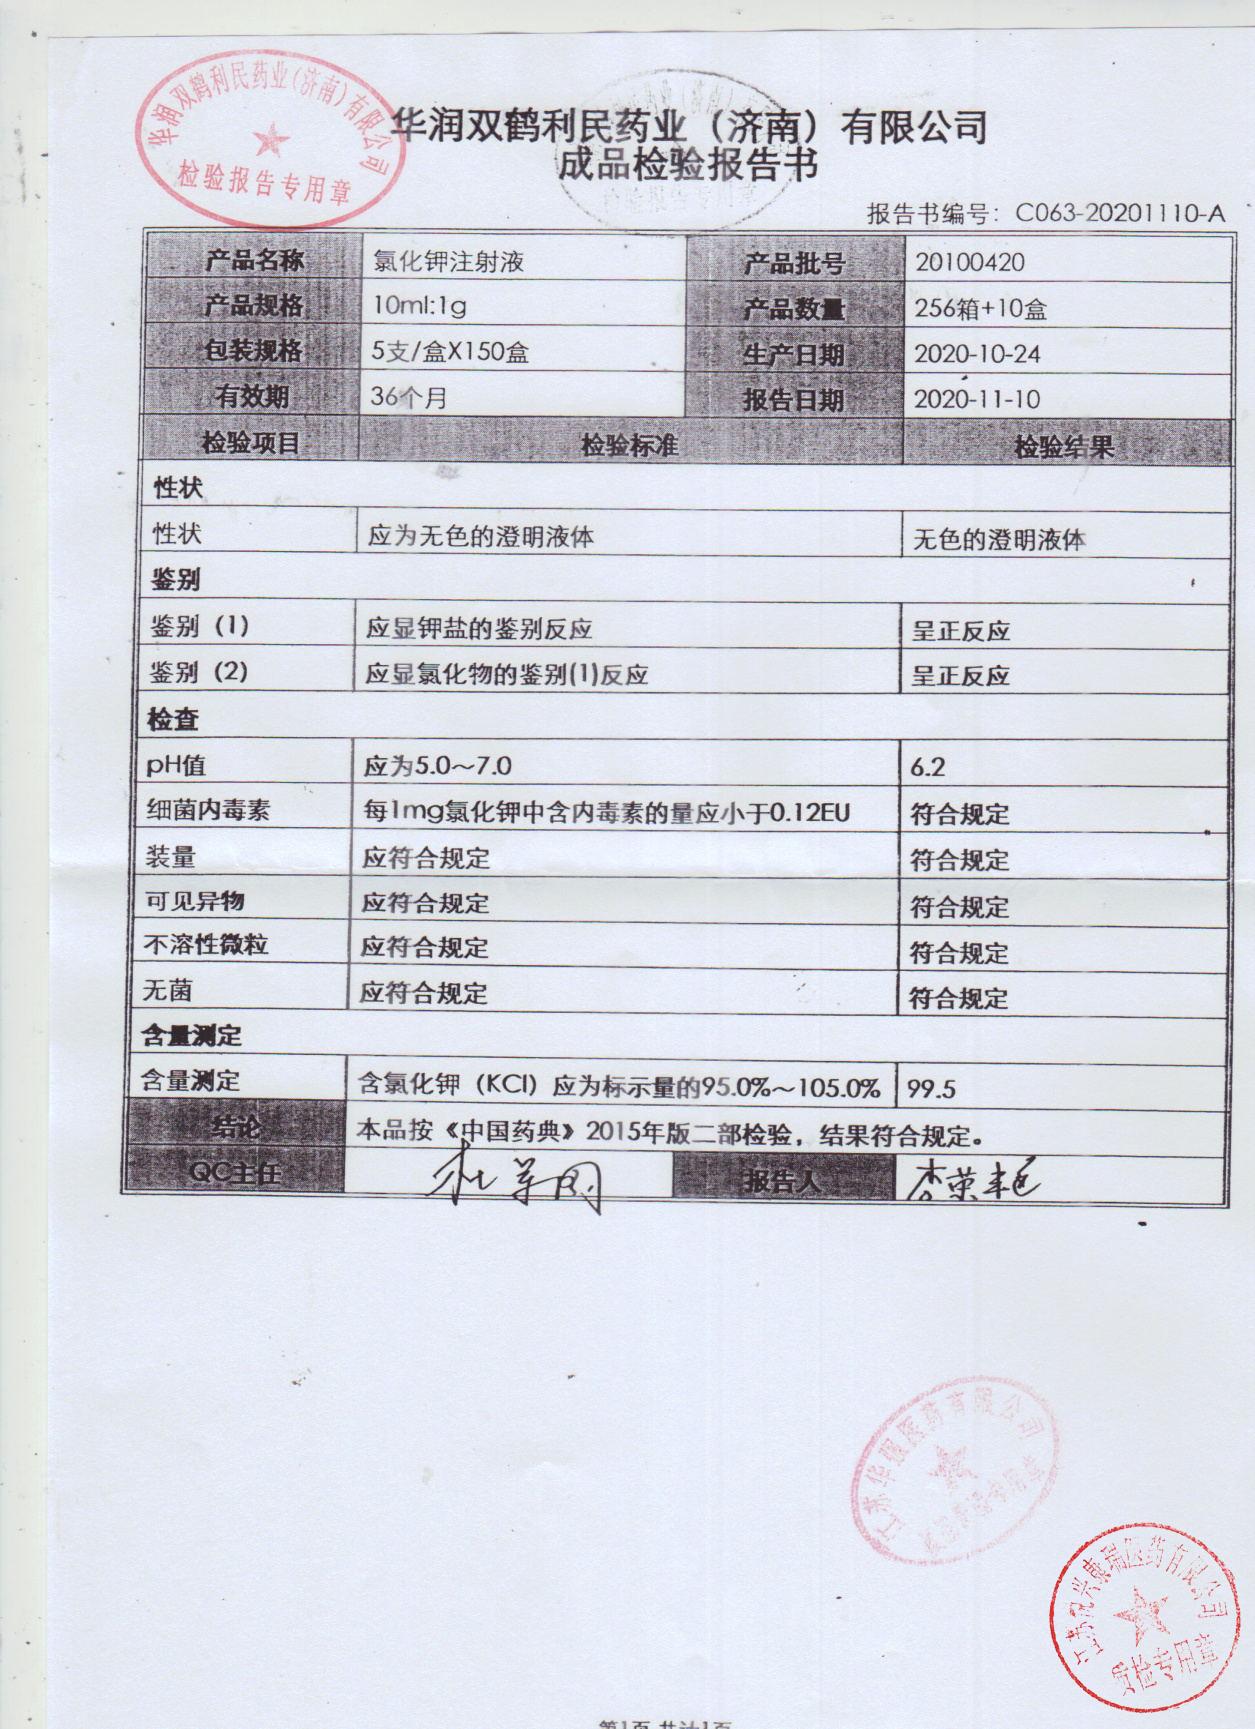 华润双鹤利民药业（济南）有限公司
检验报告专用章
华润双鹤利民药业（济南）有限公司
成品检验报告书
报告书编号：C063-20201110-A
产品名称 氯化钾注射液 产品批号 20100420
产品规格 10ml:1g 产品数量 256箱+10盒
包装规格 5支/盒X150盒 生产日期 2020-10-24
有效期 36个月 报告日期 2020-11-10
检验项目 检验标准 检验结果
性状
性状 应为无色的澄明液体 无色的澄明液体
鉴别
鉴别（1） 应显钾盐的鉴别反应 呈正反应
鉴别（2） 应显氯化物的鉴别(1)反应 呈正反应
检查
pH值 应为5.0～7.0 6.2
细菌内毒素 每1mg氯化钾中含内毒素的量应小于0.12EU 符合规定
装量 应符合规定 符合规定
可见异物 应符合规定 符合规定
不溶性微粒 应符合规定 符合规定
无菌 应符合规定 符合规定
含量测定
含量测定 含氯化钾（KCl）应为标示量的95.0%～105.0% 99.5
结论 本品按《中国药典》2015年版二部检验，结果符合规定。
QC主任 报告人
江苏华 医药有限公司
专用章
江苏 兴康瑞医药有限公司
质检专用章
第1页 共计1页